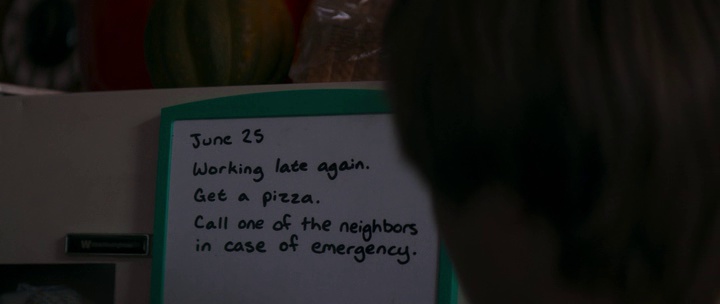 June 25
Working late again.
Get a pizza.
Call one of the neighbors
in case of emergency.